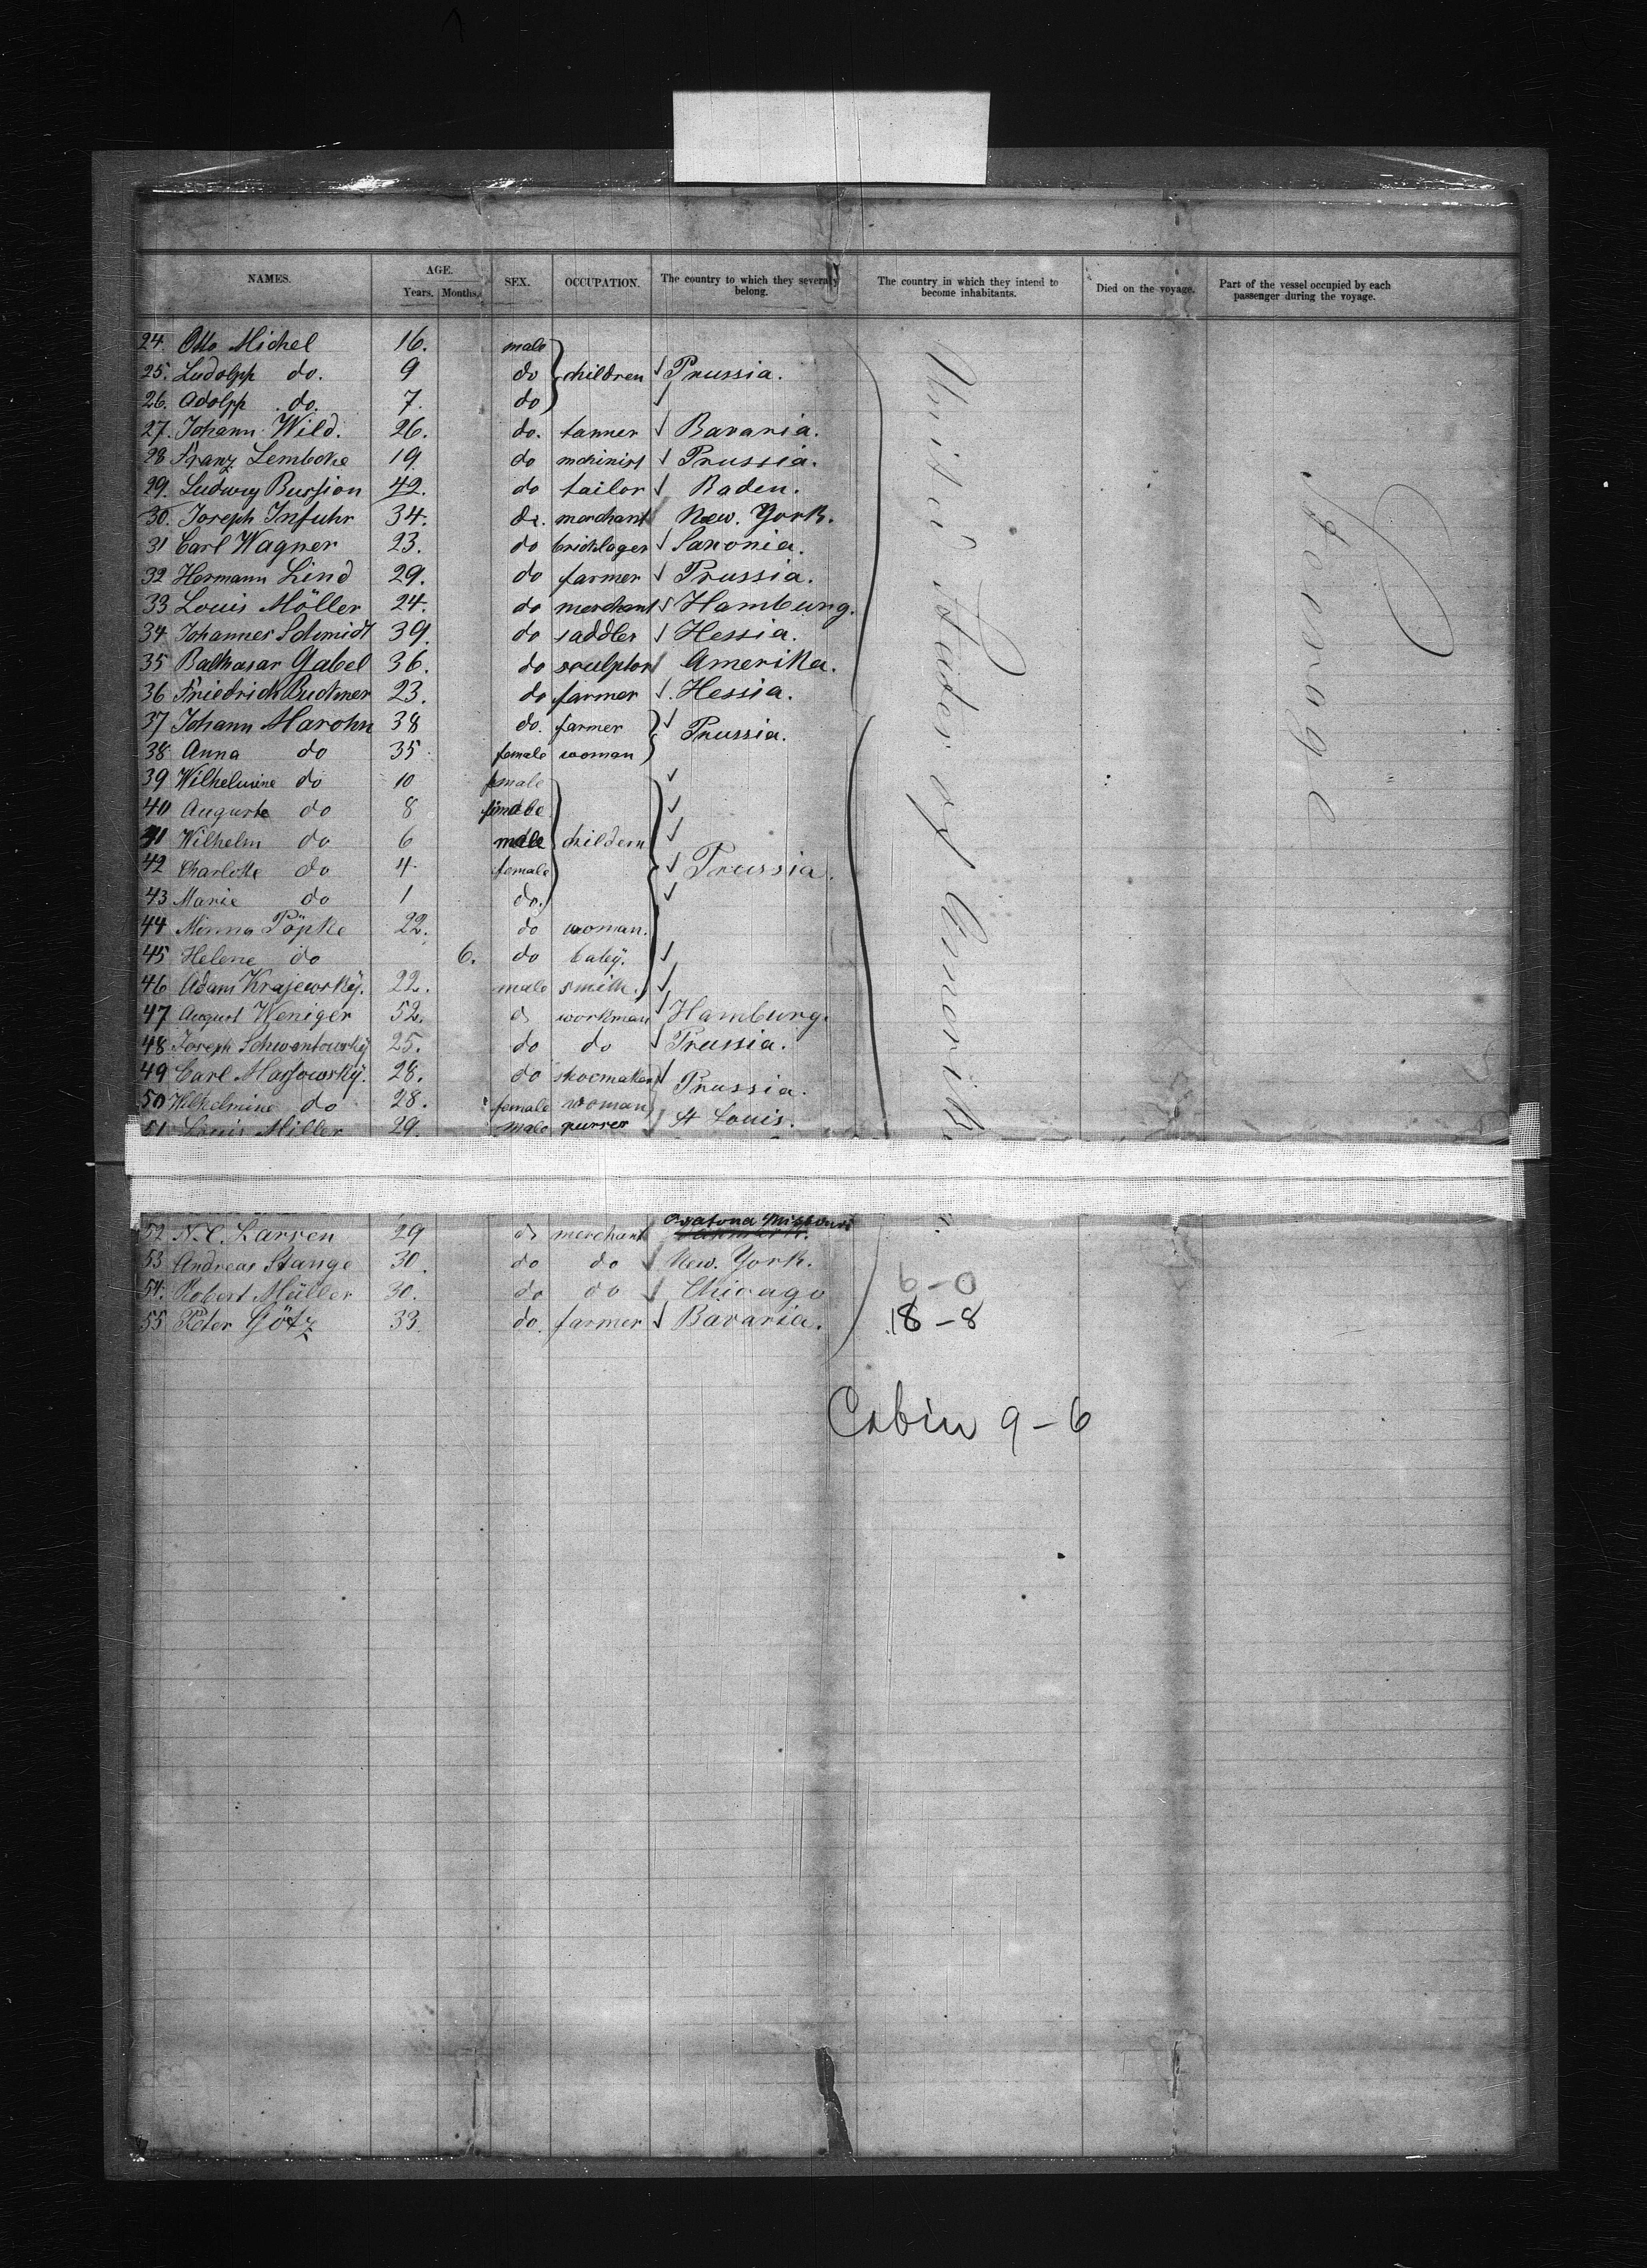 NAMES. AGE. SEX. OCCUPATION. The country to which they severally belong. The country in which they intend to become inhabitants. Died on the voyage. Part of the vessel occupied by each passenger during the voyage.
Years. Months.
24. Otto Michel 16. male
25. Ludolph do. 9 do children Prussia.
26. Adolph do. 7. do
27. Johann Wild. 26. do. tanner Bavaria.
28 Franz Lembcke 19 do mchinist Prussia.
29. Ludwig 42. do tailor Baden.
30. Joseph Infuhr 34. do. merchant New. York.
31 Carl Wagner 23. do bricklager Saxonia.
32 Hermann Lind 29. do farmer Prussia.
33 Louis Möller 24. do merchant Hamburg.
34 Johannes Schmidt 39. do saddler Hessia.
35 Balthasar Gabel 36. do sculptor Amerika.
36 Friedrich Buchner 23. do farmer Hessia.
37 Johann Marohn 38 do. farmer Prussia.
38 Anna do 35 female woman
39 Wilhelmine do 10 female
40 Auguste do 8 female
41 Wilhelm do 6 male childern
42 Charlotte do 4 female Prussia.
43 Marie do 1 do.
44 Minna Pöpke 22. do woman.
45 Helene do 6. do baby.
46 Adam Krajewsky. 22. male smith.
47 August Weniger 52. do workman Hamburg.
48 Joseph Schwentowsky 25. do do Prussia.
49 Carl Massowsky. 28. do shoemaker Prussia.
50 Wilhelmine do 28. female woman
51 Louis Miller 29. male St Louis.
United States of Amerika.
Steerage
52 N. C. Larsen 29 do merchant Missouri
53 Andreas Stange 30. do do New. York.
54. Robert Müller 30. do do Chicago
55 Peter Götz 33. do. farmer Bavaria.
6-0
18-8
Cabin 9-6